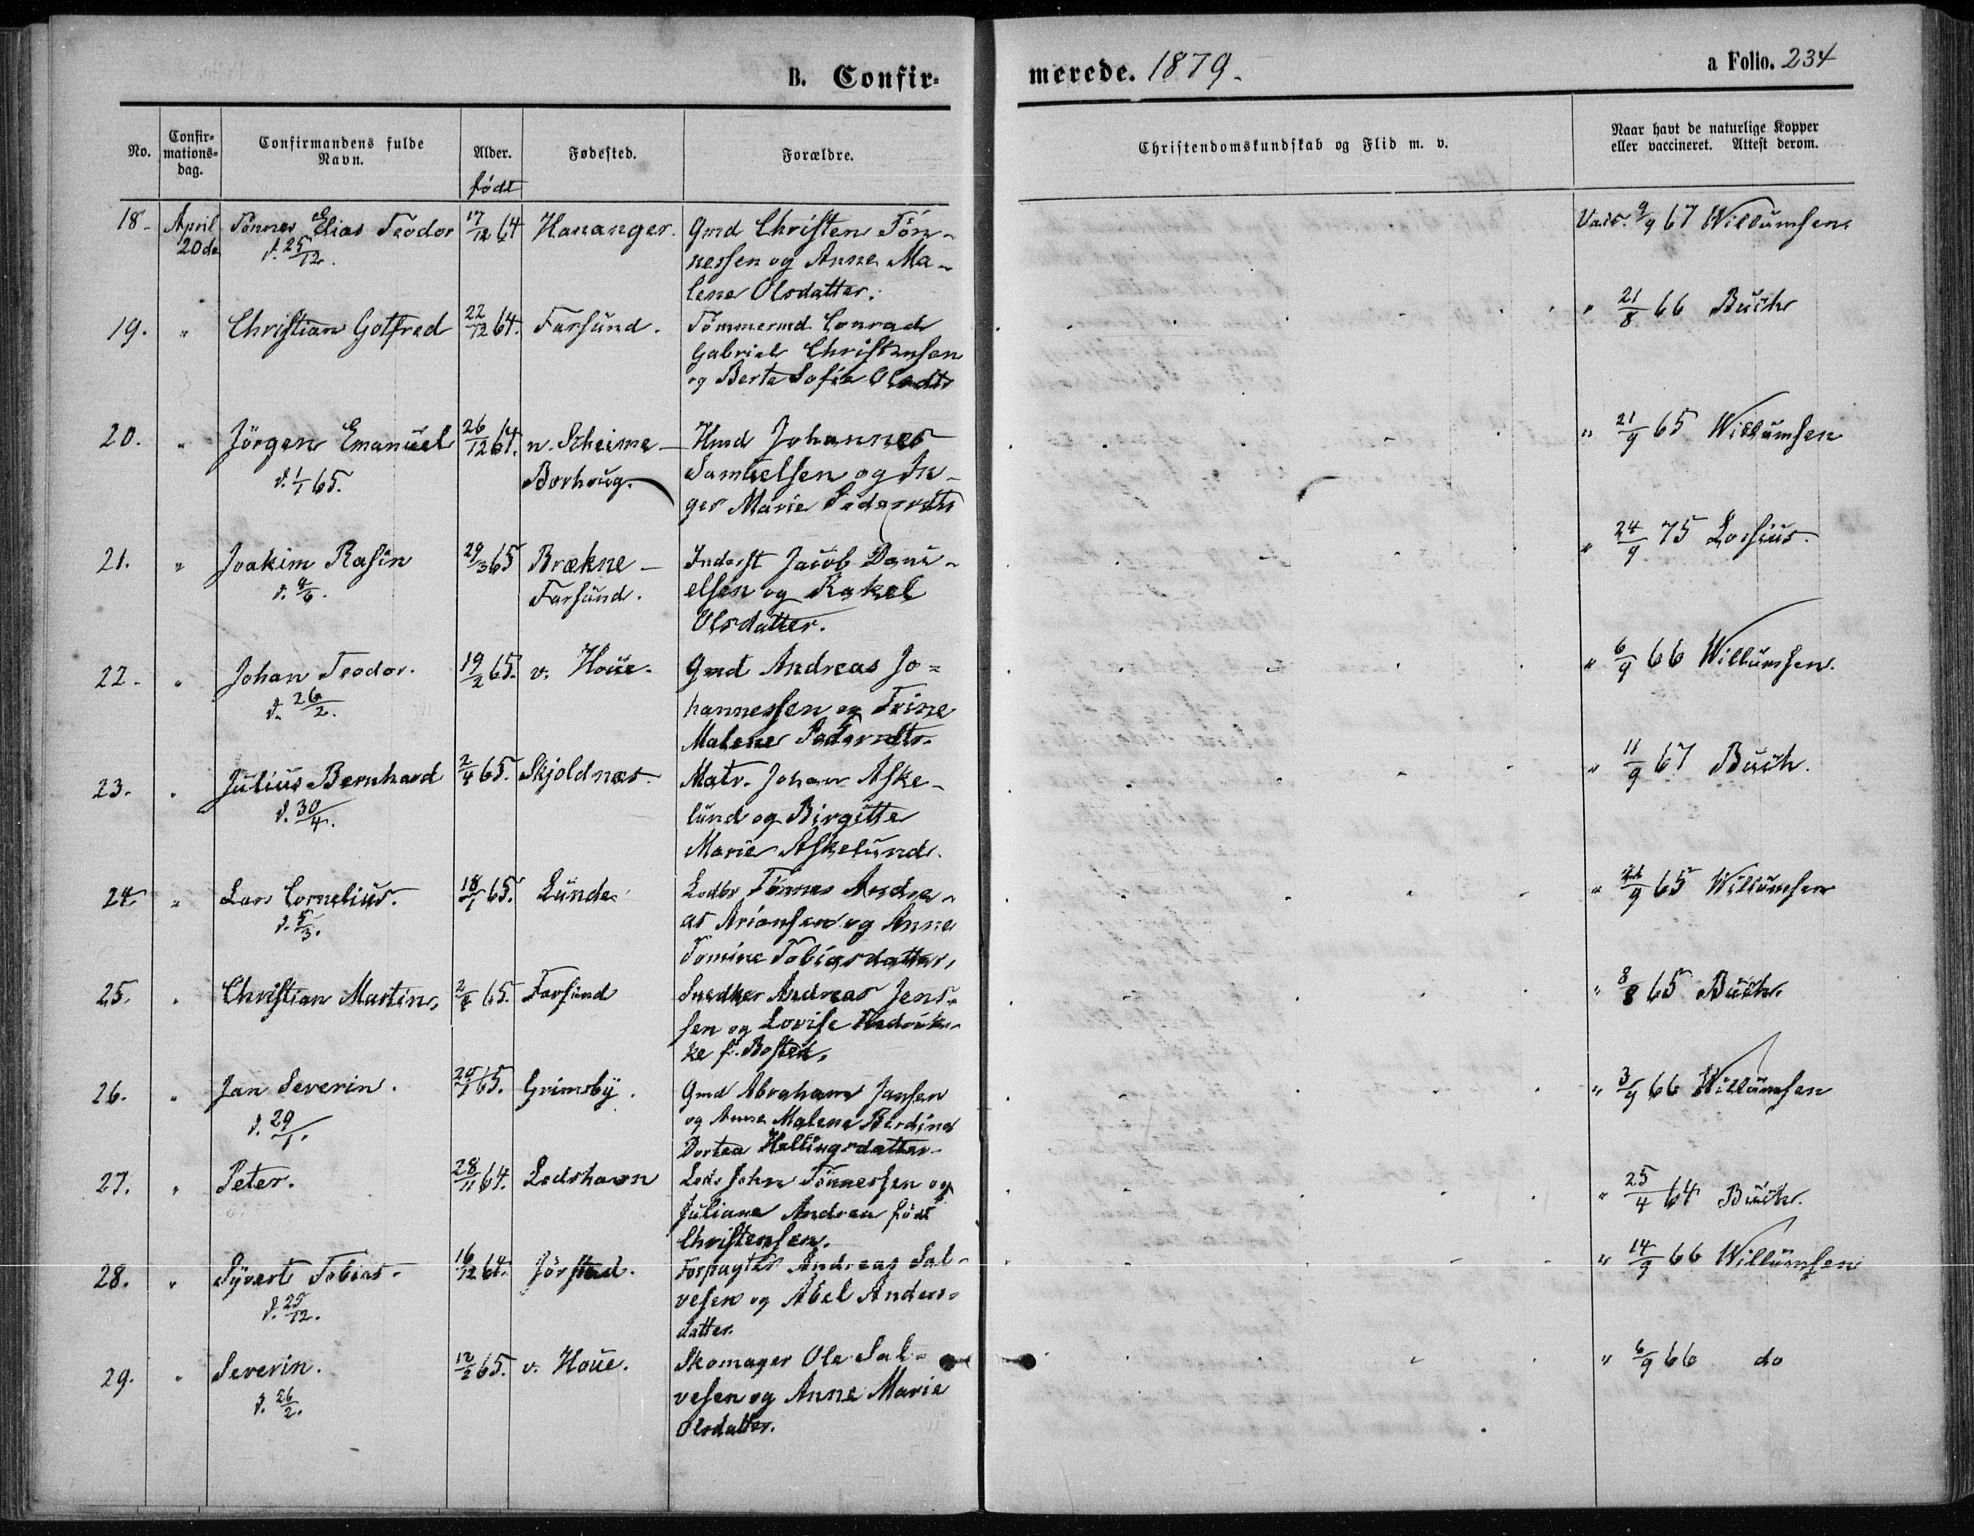 B. Confir-
merede. 1879.
a Folio. 234
No.
Confir-
mations-
dag.
Confirmandens fulde
Navn.
Alder.
født
Fødested.
Forældre.
Christendomskundskab og Flid m. v.
Naar havt de naturlige Kopper
eller vaccineret. Attest derom.
18. April Tönnes Elias Teodor 17/12 64 Hananger. Gmd Christen Tön- Vacc. 9/9 67 Willumsen.
20de d. 25/12. nessen og Anne Ma-
lene Olsdatter.
19. " Christian Gotfred 22/12 64. Farsund. Tömmermd Conrad " 21/8 66 Buch
Gabriel Christensen
og Berte Sofie Olsdtr
20. " Jörgen Emanuel 26/12 64. n. Skeime - Hmd Johannes " 21/9 65 Willumsen
d. 1/1 65. Borhoug. Samuelsen og In-
ger Marie Pedersdtr
21. " Joakim Rasin 29/3 65 Brækne - Inderst Jacob Dani- " 24/9 75 Lossius.
Farsund. elsen og Rakel
Olsdatter.
22. " Johan Teodor. 19/2 65. v. Houe. Gmd Andreas Jo- " 6/9 66 Willumsen.
d. 26/2. hannessen og Trine
Malene Pedersdtr.
23. " Julius Bernhard 2/4 65. Skjoldnæs. Matr. Johan Aske- " 11/9 67 Buch.
d. 30/4. lund og Birgitte
Marie Askelund.
24. " Lars Cornelius. 18/1 65. Lunde. Lodbr Tönnes Andre- " 65 Willumsen
d. 5/3. as Ariansen og Anne
Tomine Tobiasdatter.
25. " Christian Martin, 65. Farsund Snedker Andreas Jens- " 8/8 65 Buch.
sen og Lovise Fredrik-
ke f.
26. " Jan Severin. 65. Grimsby. Gmd Abraham Jansen " 3/9 66 Willumsen
d. 29/1. og Anne Malene Berdine
Dortea Hellingsdatter.
27. " Peter. 28/11 64. Lodshavn Lods John Tönnessen og " 25/4 64 Buch.
Juliane Andrea född
Christensen.
28. " Syvert Tobias. 16/12 64. Jörstad. Forpagter Andreas Sal- " 14/9 66 Willumsen
d. 25/12. vesen og Abel Anders-
datter.
29. " Severin. 12/2 65. v. Houe. Skomager Ole Sal- " 6/9 66 do
d. 26/2. vesen og Anne Marie
Olsdatter.